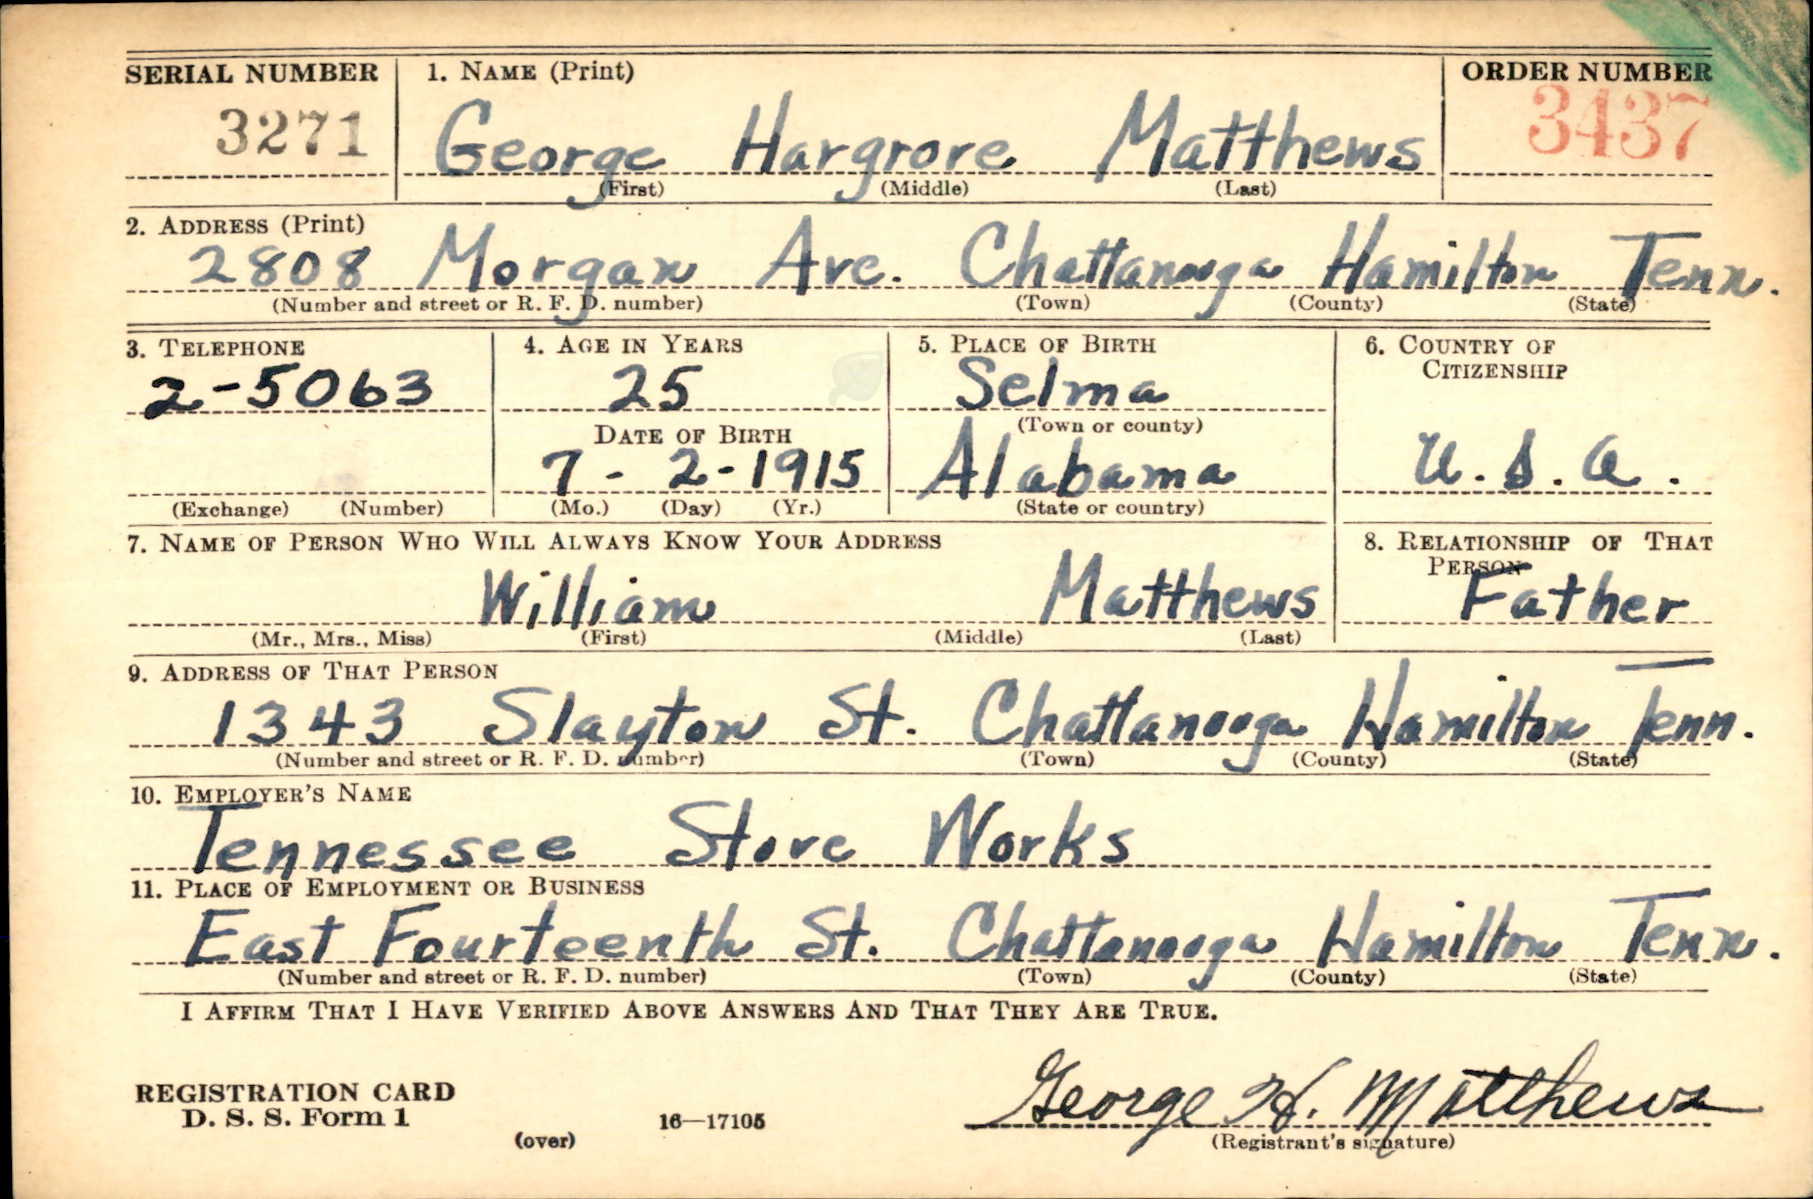 SERIAL NUMBER 1. NAME (Print) ORDER NUMBER
3271 George Hargrove Matthews 3437
(First) (Middle) (Last)
2. ADDRESS (Print)
2808 Morgan Ave. Chattanooga Hamilton Tenn.
(Number and street or R. F. D. number) (Town) (County) (State)
3. TELEPHONE 4. AGE IN YEARS 5. PLACE OF BIRTH 6. COUNTRY OF
CITIZENSHIP
2-5063 25 Selma
(Town or county)
DATE OF BIRTH
7-2-1915 Alabama U.S.A.
(Exchange) (Number) (Mo.) (Day) (Yr.) (State or country)
7. NAME OF PERSON WHO WILL ALWAYS KNOW YOUR ADDRESS 8. RELATIONSHIP OF THAT
PERSON
William Matthews Father
(Mr., Mrs., Miss) (First) (Middle) (Last)
9. ADDRESS OF THAT PERSON
1343 Slayton St. Chattanooga Hamilton Tenn.
(Number and street or R. F. D. number) (Town) (County) (State)
10. EMPLOYER'S NAME
Tennessee Stove Works
11. PLACE OF EMPLOYMENT OR BUSINESS
East Fourteenth St. Chattanooga Hamilton Tenn.
(Number and street or R. F. D. number) (Town) (County) (State)
I AFFIRM THAT I HAVE VERIFIED ABOVE ANSWERS AND THAT THEY ARE TRUE.
George H. Matthews
REGISTRATION CARD
D. S. S. Form 1 16—17105
(over) (Registrant's signature)